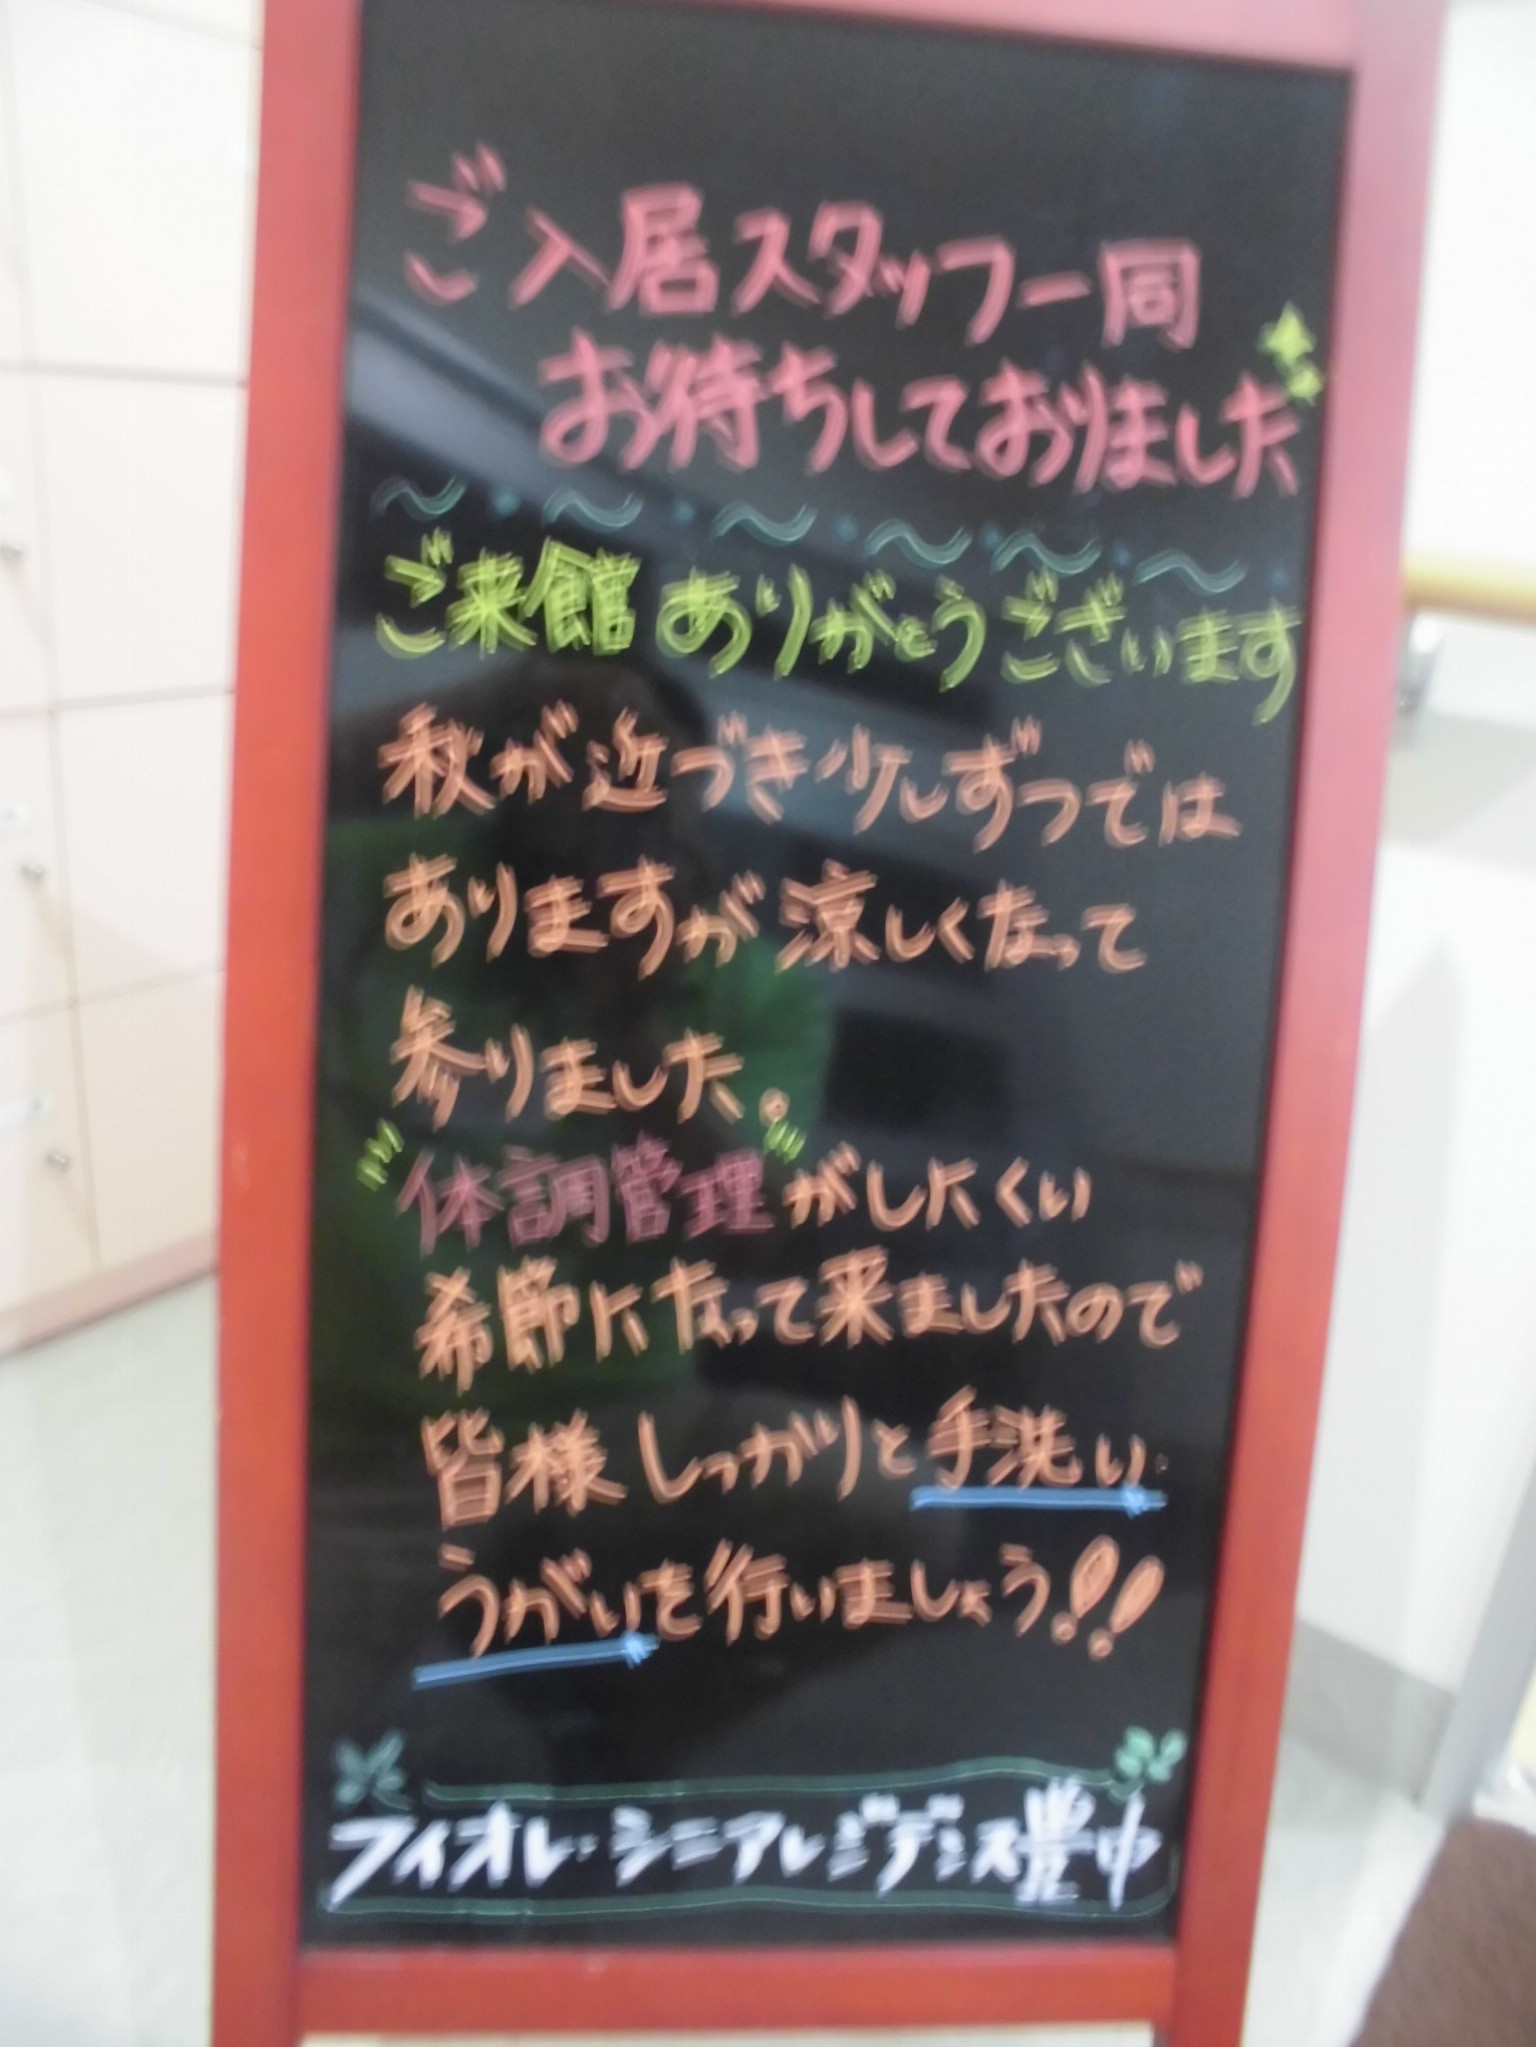 ご入居スタッフ一同
お待ちしておりました
ご来館ありがとうございます
秋が近づき少しずつでは
ありますが涼しくなって
参りました。
"体調管理"がしたくい
希節になって来ましたので
皆様しっかりと手洗い・
うがいを行いましょう!!
フィオレ・シニアレジデンス豊中